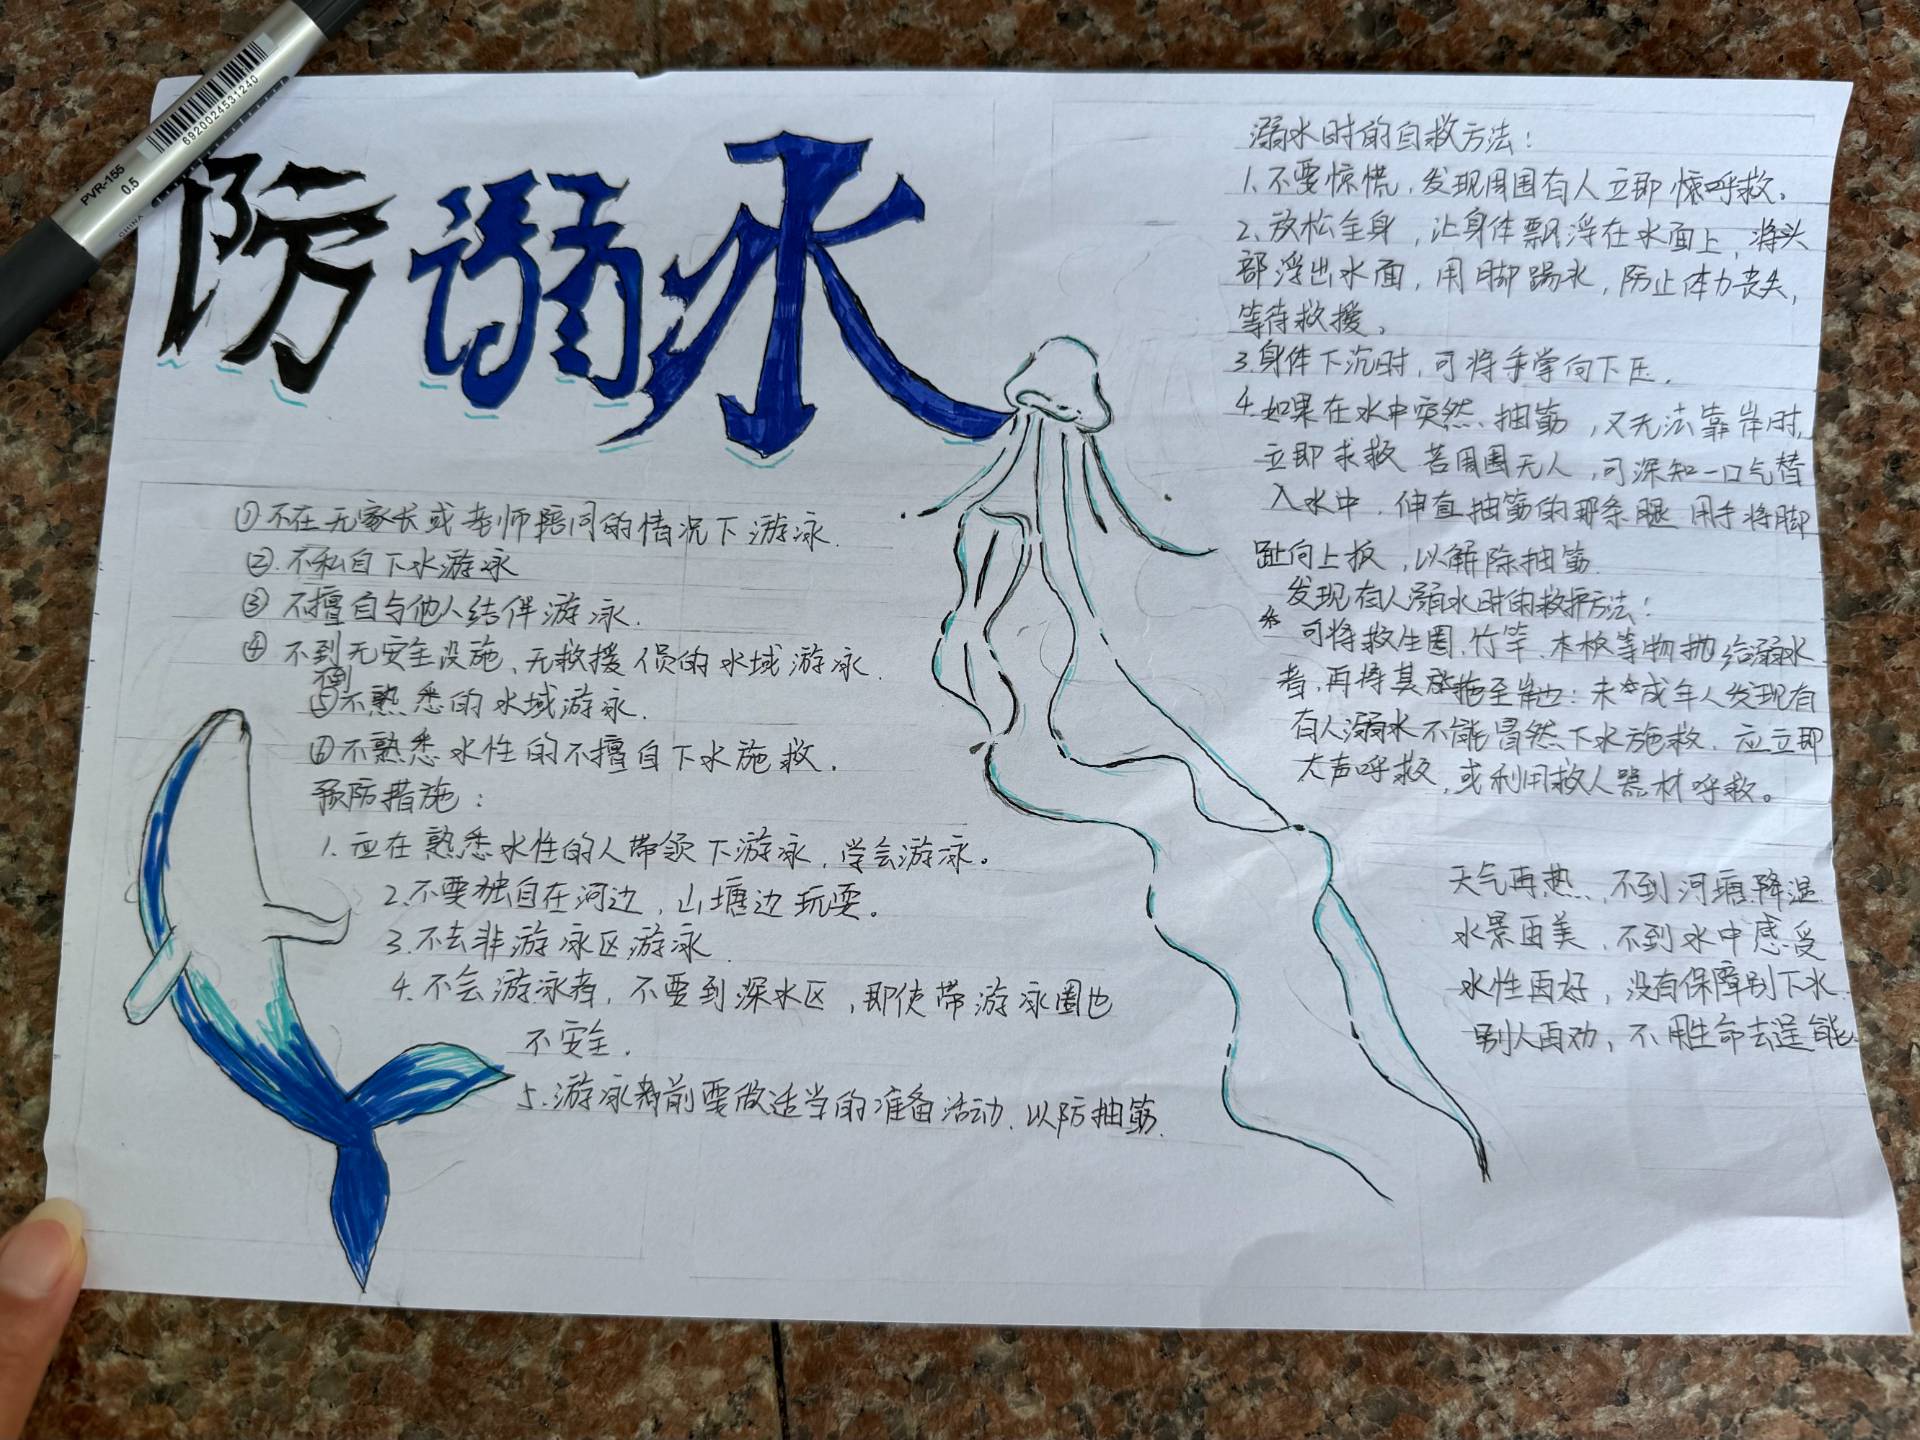 防溺水
①不在无家长或老师陪同的情况下游泳.
②.不私自下水游泳
③ 不擅自与他人结伴游泳.
④ 不到无安全设施、无救援员的水域游泳.
到
⑤不熟悉的水域游泳.
⑥不熟悉水性的不擅自下水施救.
预防措施:
1.应在熟悉水性的人带领下游泳,学会游泳。
2.不要独自在河边,山塘边玩耍。
3.不去非游泳区游泳.
4.不会游泳者,不要到深水区,即使带游泳圈也
不安全.
5.游泳者前要做适当的准备活动.以防抽筋.
溺水时的自救方法:
1.不要惊慌,发现周围有人立即 呼救.
2、放松全身,让身体飘浮在水面上,将头
部浮出水面,用脚踢水,防止体力丧失,
等待救援.
3.身体下沉时,可将手掌向下压.
4.如果在水中突然、抽筋,又无法靠岸时,
立即求救 若周围无人,可深知一口气替
入水中,伸直抽筋的那条腿 用手将脚
趾向上扳,以解除抽筋.
发现有人溺水时的救护方法:
可将救生圈.竹竿 木板等物抛给溺水
者,再将其 拖至岸边:未成年人发现有
有人溺水不能冒然下水施救.应立即
大声呼救,或利用救人器材呼救。
天气再热,不到河塘降温
水景再美,不到水中感受
水性再好,没有保障别下水.
别人再劝,不用生命去逞能.
PVR-155
0.5
CHINA
6920024531240